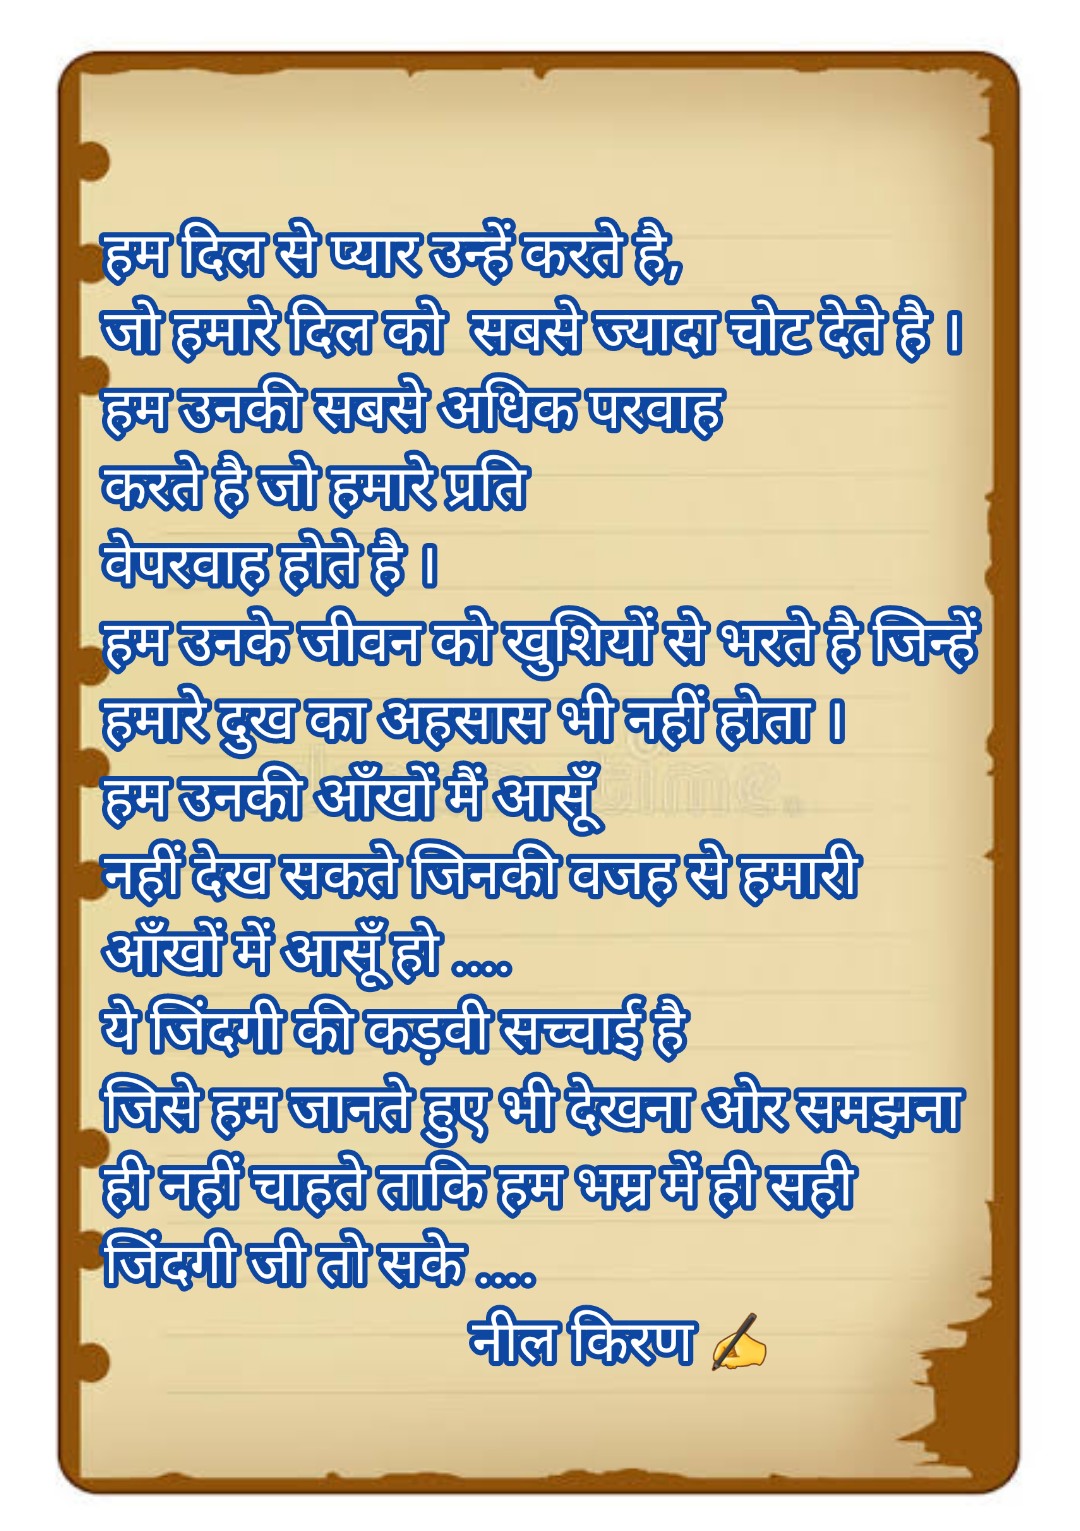 हम दिल से प्यार उन्हें करते है,
जो हमारे दिल को सबसे ज्यादा चोट देते है ।
हम उनकी सबसे अधिक परवाह
करते है जो हमारे प्रति
वेपरवाह होते है ।
हम उनके जीवन को खुशियों से भरते है जिन्हें
हमारे दुख का अहसास भी नहीं होता ।
हम उनकी आँखों मैं आसूँ
नहीं देख सकते जिनकी वजह से हमारी
आँखों में आसूँ हो ....
ये जिंदगी की कड़वी सच्चाई है
जिसे हम जानते हुए भी देखना ओर समझना
ही नहीं चाहते ताकि हम भम्र में ही सही
जिंदगी जी तो सके ....
नील किरण ✍️